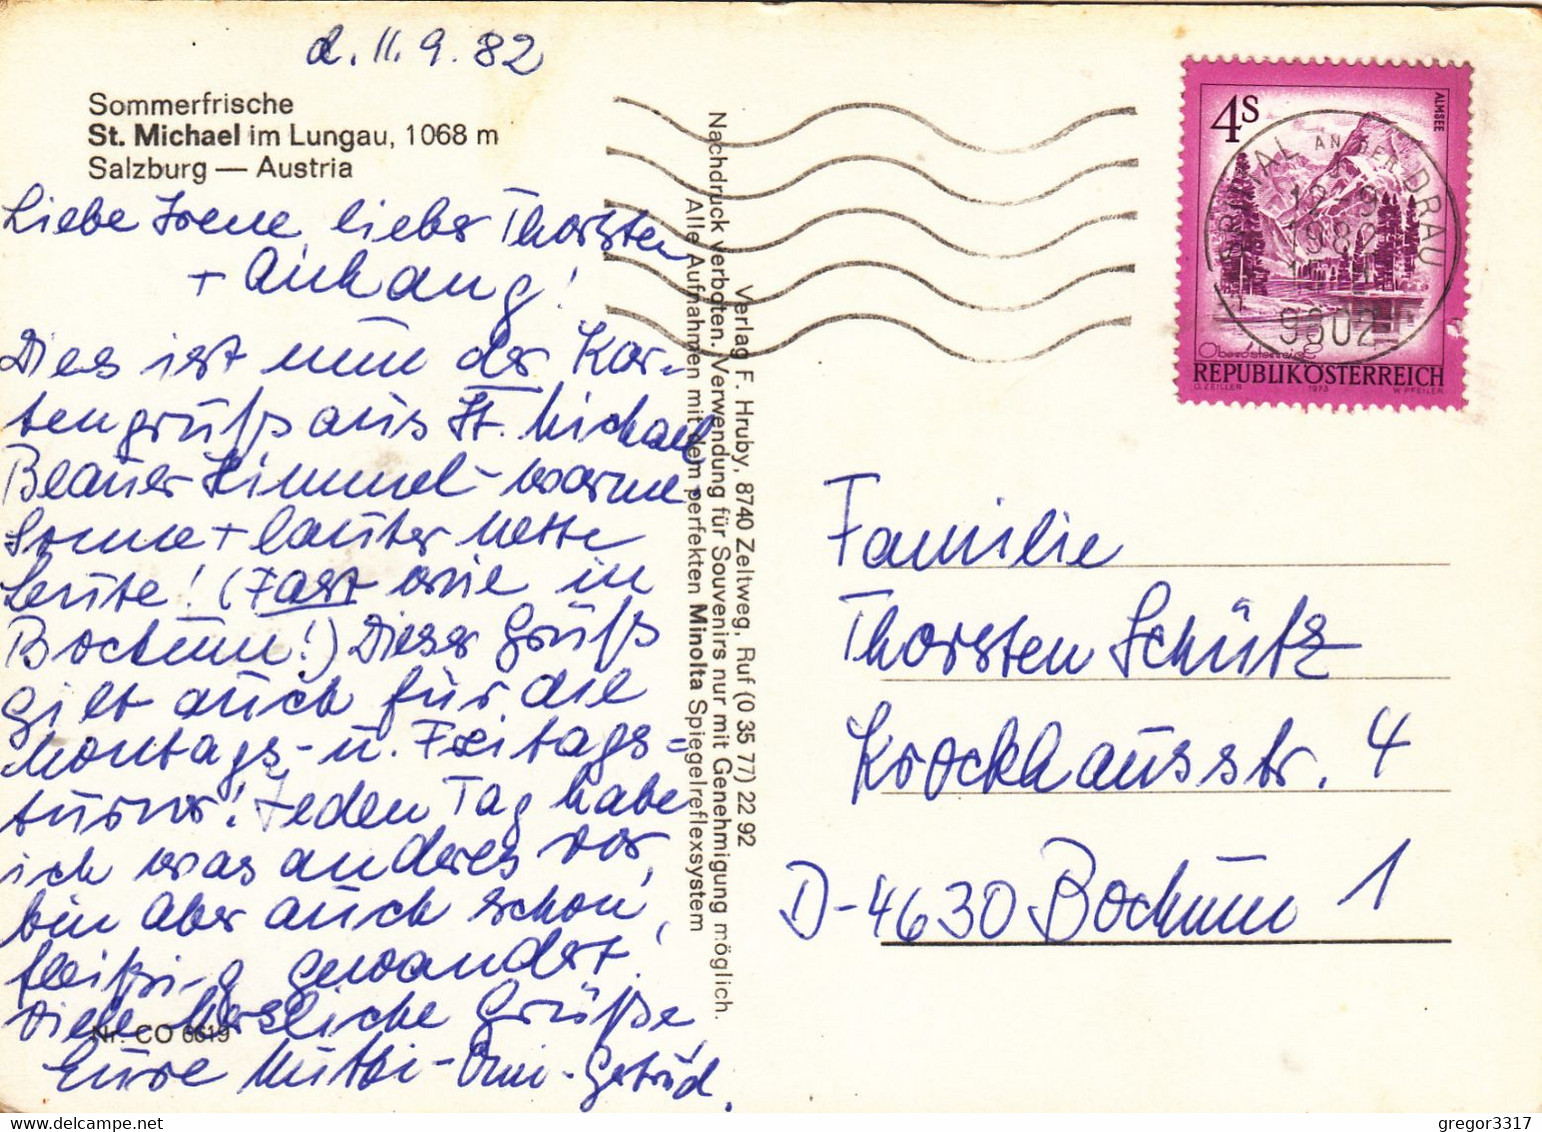 d. 11. 9. 82
Sommerfrische
St. Michael im Lungau, 1068 m
Salzburg — Austria
Liebe Irene, lieber Thorsten
+ Anhang!
Dies ist nun der Kar-
tengruß aus St. Michael
Blauer Himmel - warme
Sonne + lauter nette
Leute! (Fast wie in
Bochum!) Dieser Gruß
gilt auch für die
Montags- u. Freitags-
turner! Jeden Tag habe
ich was anderes vor,
bin aber auch schon
fleißig gewandert!
Viele herzliche Grüße,
Eure Mutti - Omi - Gertrud.
Nr. CO 6619
Verlag F. Hruby, 8740 Zeltweg, Ruf (0 35 77) 22 92
Nachdruck verboten. Verwendung für Souvenirs nur mit Genehmigung möglich.
Alle Aufnahmen mit dem perfekten Minolta Spiegelreflexsystem
4S
ALMSEE
AN DER DRAU
1982
9602
Oberösterreich
REPUBLIK ÖSTERREICH
O. ZEILLER 1973 W. PFEILER
Familie
Thorsten Schütz
Krockhausstr. 4
D-4630 Bochum 1
gregor3317
www.delcampe.net